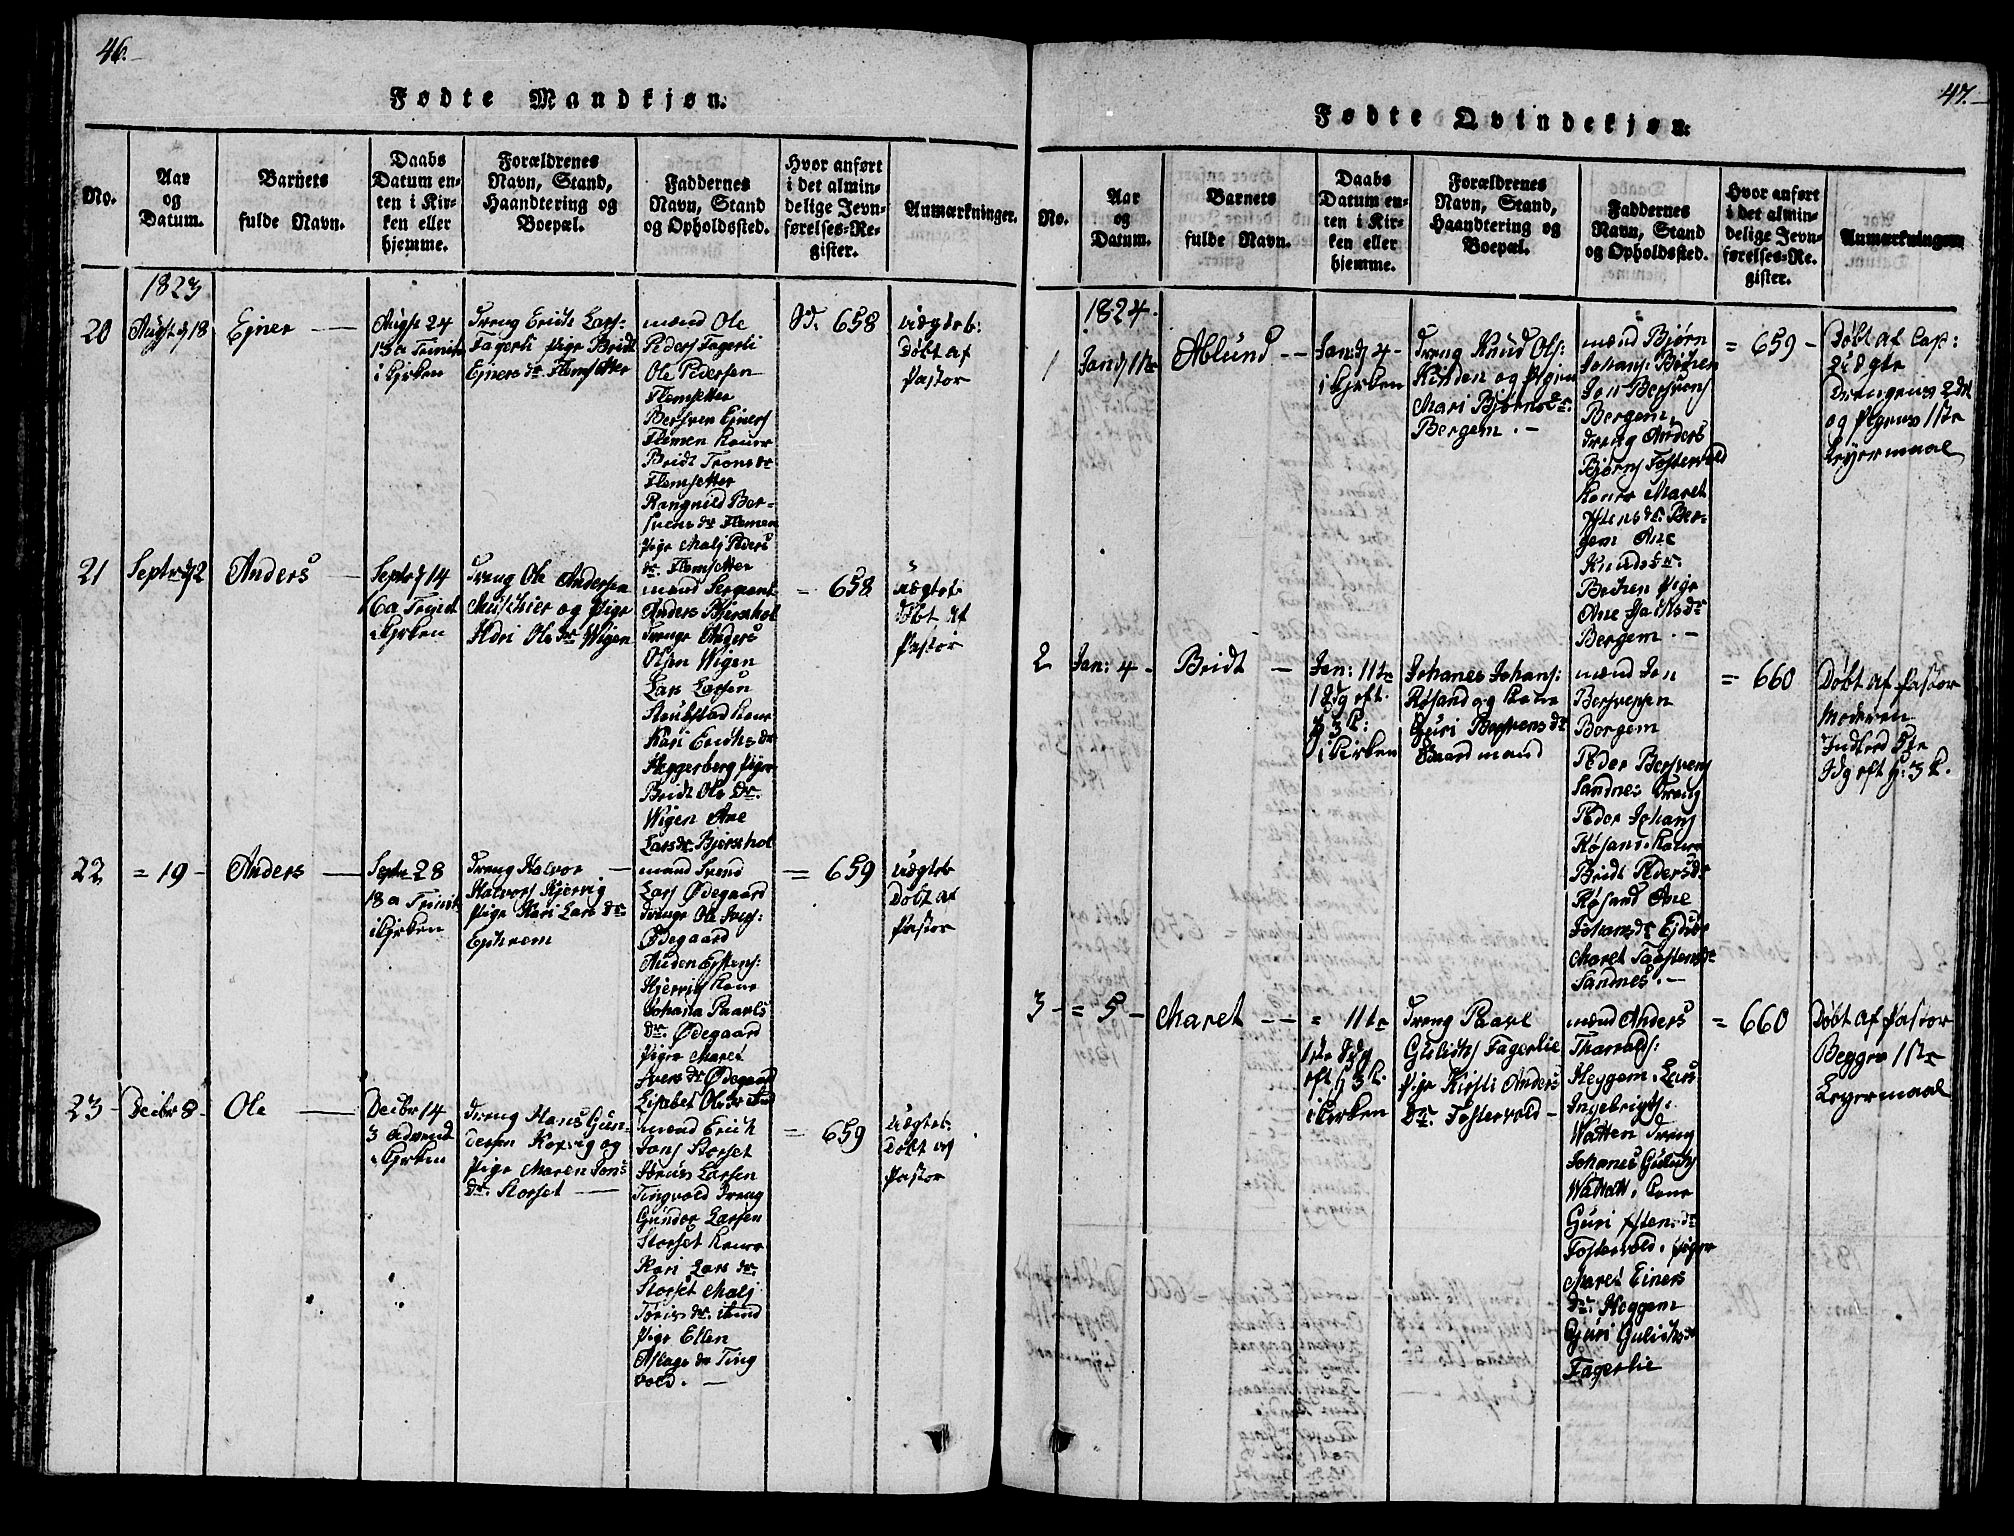 46.
Fødte Mandkjøn.
No.
Aar
og
Datum.
Barnets
fulde Navn.
Daabs
Datum en-
ten i Kir-
ken eller
hjemme.
Forældrenes
Navn, Stand,
Haandtering og
Boepæl.
Faddernes
Navn, Stand
og Opholdssted.
Hvor anført
i det almin-
delige Jevn-
førelses-Re-
gister.
Anmærkninger.
1823
20
Augst 18
Ejner
Augst 24
13 a Trinit
i Kirken
Dreng Erich Lars:
Fagerli Pige Bridt
Ejners dr. Flemsetter
mænd Ole
Peders Fagerli
Ole Pedersen
Flemsetter
Bersven Ejners
Flemen Koner
Bridt Trons dr
Flemsetter
Rangnild Ber-
svens dr Flemen
Pige Malj Peders
dr. Flemsetter
658
uægteb:
Døbt af
Pastor
21
Septr 2
Anders
Septr 14
16 a Trinit
i Kirken
Dreng Ole Andersen
og Pige
Ildri Ole dr Wigen
mænd Sergeant
Anders Bjerkhol
Drenge Anders
Olsen Wigen
Lars Larsen
Stoubstad Kone
Kari Erichs dr
Heggerberg Pige
Bridt Ole dr.
Wigen Ane
Lars dr. Bjerkhol
= 658
uægteb.
Døbt af
Pastor
22
= 19 -
Anders
Septr 28
18 a Trinit
i Kirken
Dreng Halvor
Halvors Hjervig
Pige Kari Lars dr.
Ephrem
mænd Svend
Lars Ødegaard
Drenge Ole Ives:
Ødegaard
Auden Estens:
Hjervig Kone
Johana Paavels
dr. Ødegaard
Pige Maret
Ivers dr Ødegaard
Lisabet Ole dr ibid
= 659
uægteb
Døbt af
Pastor
23
Decbr 8
Ole
Decbr 14
3 Advend
i Kirken
Dreng Hans Gun-
dersen Korvig og
Pige Maren Jons
dr. Storset
mænd Erich
Jons Storset
Jønus Larsen
Tingvold Dreng
Gundor Larsen
Storset Koner
Kari Lars dr.
Storset Malj
Tøris dr. ibid
Pige Ellen
Aslags dr Ting
vold.
= 659
uægteb.
Døbt af
Pastor
47.
Fødte Qvindekjøn.
No.
Aar
og
Datum.
Barnets
fulde Navn.
Daabs
Datum en-
ten i Kir-
ken eller
hjemme.
Forældrenes
Navn, Stand,
Haandtering og
Boepæl.
Faddernes
Navn, Stand
og Opholdssted.
Hvor anført
i det almin-
delige Jevn-
førelses-Re-
gister.
Anmærkninger
1824.
1
Jan 1te
Ablund
Jan: 4
i Kirken
Dreng Knud Ols:
og Pigen
Mari Bjørns dr.
Bergem.
mænd Bjørn
Johans: Bøchen
Jon Bersvens
Bergem
Dreng Anders
Bjørns Fostervold
Koner Maret
Estens dr. Ber-
gem Ane
Knuds dr.
Bøchen Pige
Ane Jachs dr
Bergem.
= 659
Døbt af Cap:
uægte
Drengens 2det
og Pigens 1ste
Leyermaal
2
Jan: 4
Bridt
Jan: 11te
1 Sdg eft.
h 3 K:
i Kirken
Johanes Johans:
Røsand og Kone
Guri Bersvens dr
Gaardmand
mænd Jon
Bersvensen
Bergem
Peder Bersvens
Sandnes Dreng
Peder Johans
Røsand. Koner
Bridt Peders dr
Røsand Ane
Johans dr Ejdet
Maret Torstens dr
Sandnes.
= 660
Døbt af Pastor
Moderen
Indlerd 5te
Sdg eft h: 3 K.
3
= 5
Maret
= 11te
1ste Sdg
eft h 3 K.
i Kirken
Dreng Paavl
Gulichs Fagerlie
Pige Kirsti Anders
Dr. Fostervold
mænd Anders
Tharralds:
Heggem. Lars
Ingebrigts:
Watten Dreng
Johanes Gulichs
Watten. Kone
Guri Esten: dr
Fostervold. Piger
Maret Einers
dr. Heggem
Guri Gulichs dr
Fagerlie
= 660
Døbt af Pastor
Begges 1ste
Leyermaal